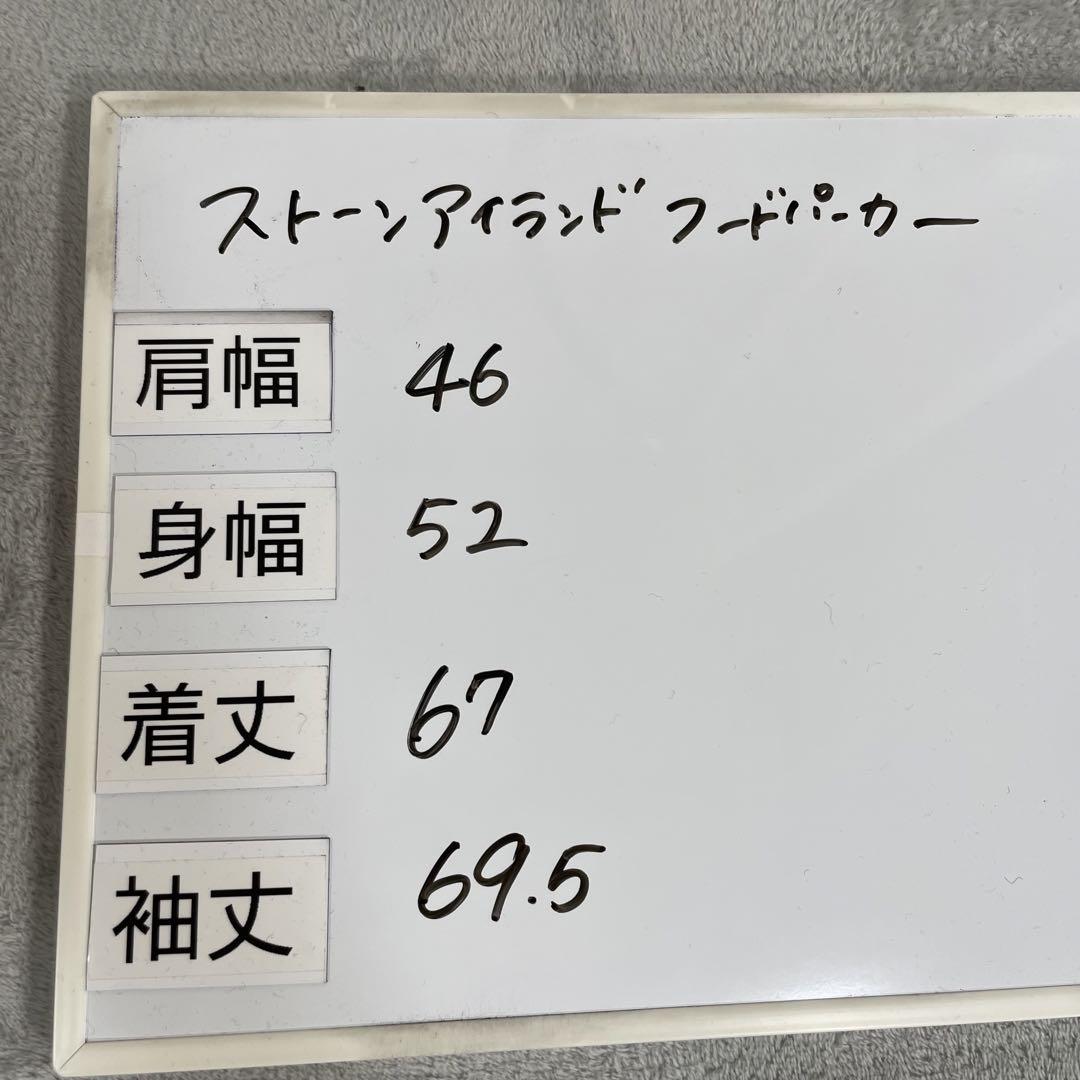 ストーンアイランド フードパーカー
肩幅 46
身幅 52
着丈 67
袖丈 69.5